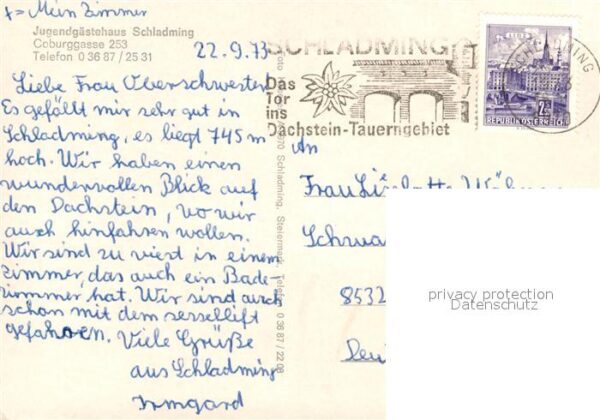 x = Mein Zimmer
Jugendgästehaus Schladming
Coburggasse 253
Telefon 0 36 87 / 25 31
22.9.73
Liebe Frau Oberschwester
Es gefällt mir sehr gut in
Schladming, es liegt 745 m
hoch. Wir haben einen
wundervollen Blick auf
den Dachstein, wo wir
auch hinfahren wollen.
Wir sind zu viert in einem
Zimmer, das auch ein Bade-
zimmer hat. Wir sind auch
schon mit dem Sessellift
gefahren. Viele Grüße
aus Schladming
Irmgard
8970 Schladming, Steiermark, Telefon 0 36 87 / 22 08
SCHLADMING
Das
Tor
ins
Dachstein-Tauerngebiet
LINZ
2.50
REPUBLIK ÖSTERREICH
SCHLADMING
An
Frau
Schwa
8532
privacy protection
Datenschutz